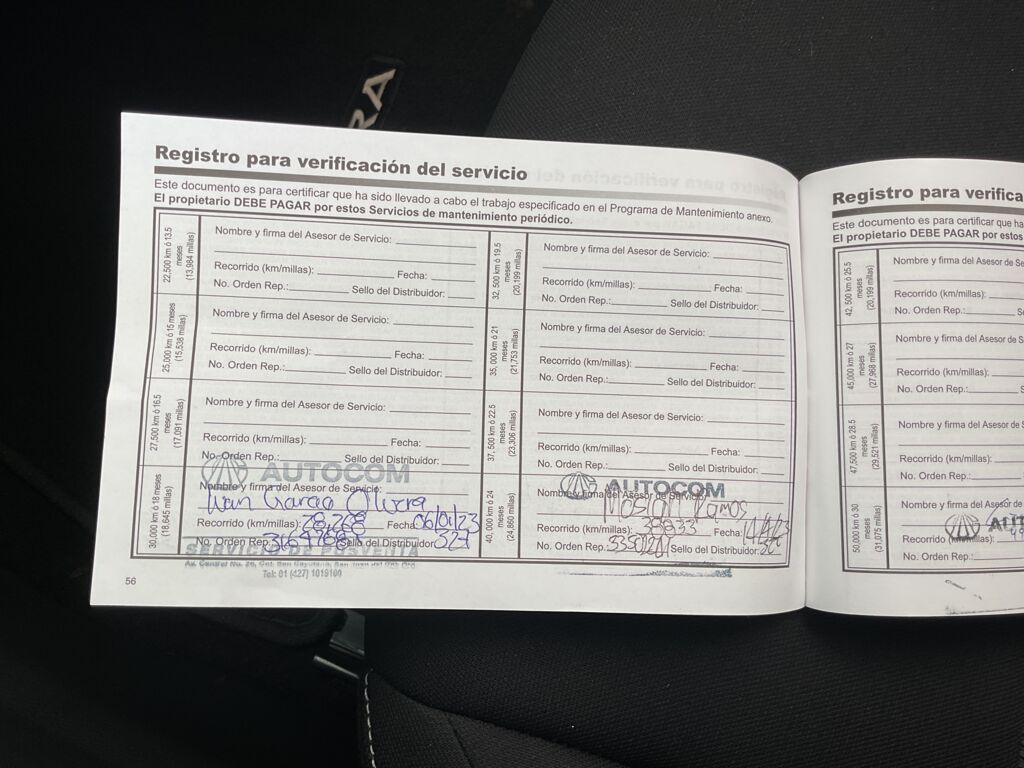 RA
Registro para verificación del servicio
Este documento es para certificar que ha sido llevado a cabo el trabajo especificado en el Programa de Mantenimiento anexo.
El propietario DEBE PAGAR por estos Servicios de mantenimiento periódico.
22,500 km ó 13.5
meses
(13,984 millas)
Nombre y firma del Asesor de Servicio:
Recorrido (km/millas): Fecha:
No. Orden Rep.: Sello del Distribuidor:
25,000 km ó 15 meses
(15,538 millas)
Nombre y firma del Asesor de Servicio:
Recorrido (km/millas): Fecha:
No. Orden Rep.: Sello del Distribuidor:
27,500 km ó 16.5
meses
(17,091 millas)
Nombre y firma del Asesor de Servicio:
Recorrido (km/millas): Fecha:
No. Orden Rep.: Sello del Distribuidor:
30,000 km ó 18 meses
(18,645 millas)
AUTOCOM
Nombre y firma del Asesor de Servicio:
Ivan Garcia Olvera
Recorrido (km/millas): 28,268 Fecha: 06/01/23
No. Orden Rep. Sello del Distribuidor: 327
SERVICIO DE POSVENTA
Tel: 01 (427) 1019100
56
32, 500 km ó 19.5
meses
(20,199 millas)
Nombre y firma del Asesor de Servicio:
Recorrido (km/millas): Fecha:
No. Orden Rep.: Sello del Distribuidor:
35, 000 km ó 21
meses
(21,753 millas)
Nombre y firma del Asesor de Servicio:
Recorrido (km/millas): Fecha:
No. Orden Rep.: Sello del Distribuidor:
37, 500 km ó 22.5
meses
(23,306 millas)
Nombre y firma del Asesor de Servicio:
Recorrido (km/millas): Fecha:
No. Orden Rep.: Sello del Distribuidor:
40, 000 km ó 24
meses
(24,860 millas)
AUTOCOM
Nombre y firma del Asesor de Servicio:
Ramos
Recorrido (km/millas): Fecha:
No. Orden Rep. Sello del Distribuidor:
Registro para verifica
Este documento es para certificar que ha
El propietario DEBE PAGAR por estos
42, 500 km ó 25.5
meses
(20,199 millas)
Nombre y firma del Asesor de Se
Recorrido (km/millas):
No. Orden Rep.: S
45,000 km ó 27
meses
(27,968 millas)
Nombre y firma del Asesor de S
Recorrido (km/millas):
No. Orden Rep.: S
47,500 km ó 28.5
meses
(29,521 millas)
Nombre y firma del Asesor de S
Recorrido (km/millas):
No. Orden Rep.:
50,000 km ó 30
meses
(31,075 millas)
Nombre y firma del Asesor de
AUT
Recorrido (km/millas):
No. Orden Rep.: